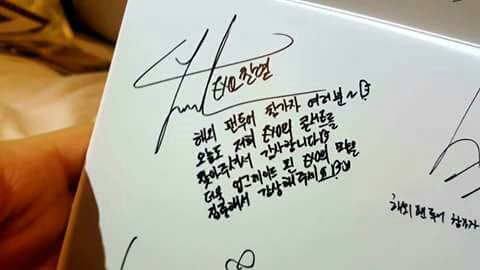 EXO 찬열
해외 팬투어 참가자 여러분~
오늘도 저희 EXO의 콘서트를
찾아주셔서 감사합니다
더욱 업그레이드 된 EXO의 모습
집중해서 감상해주세요
해외 팬투어 참가자